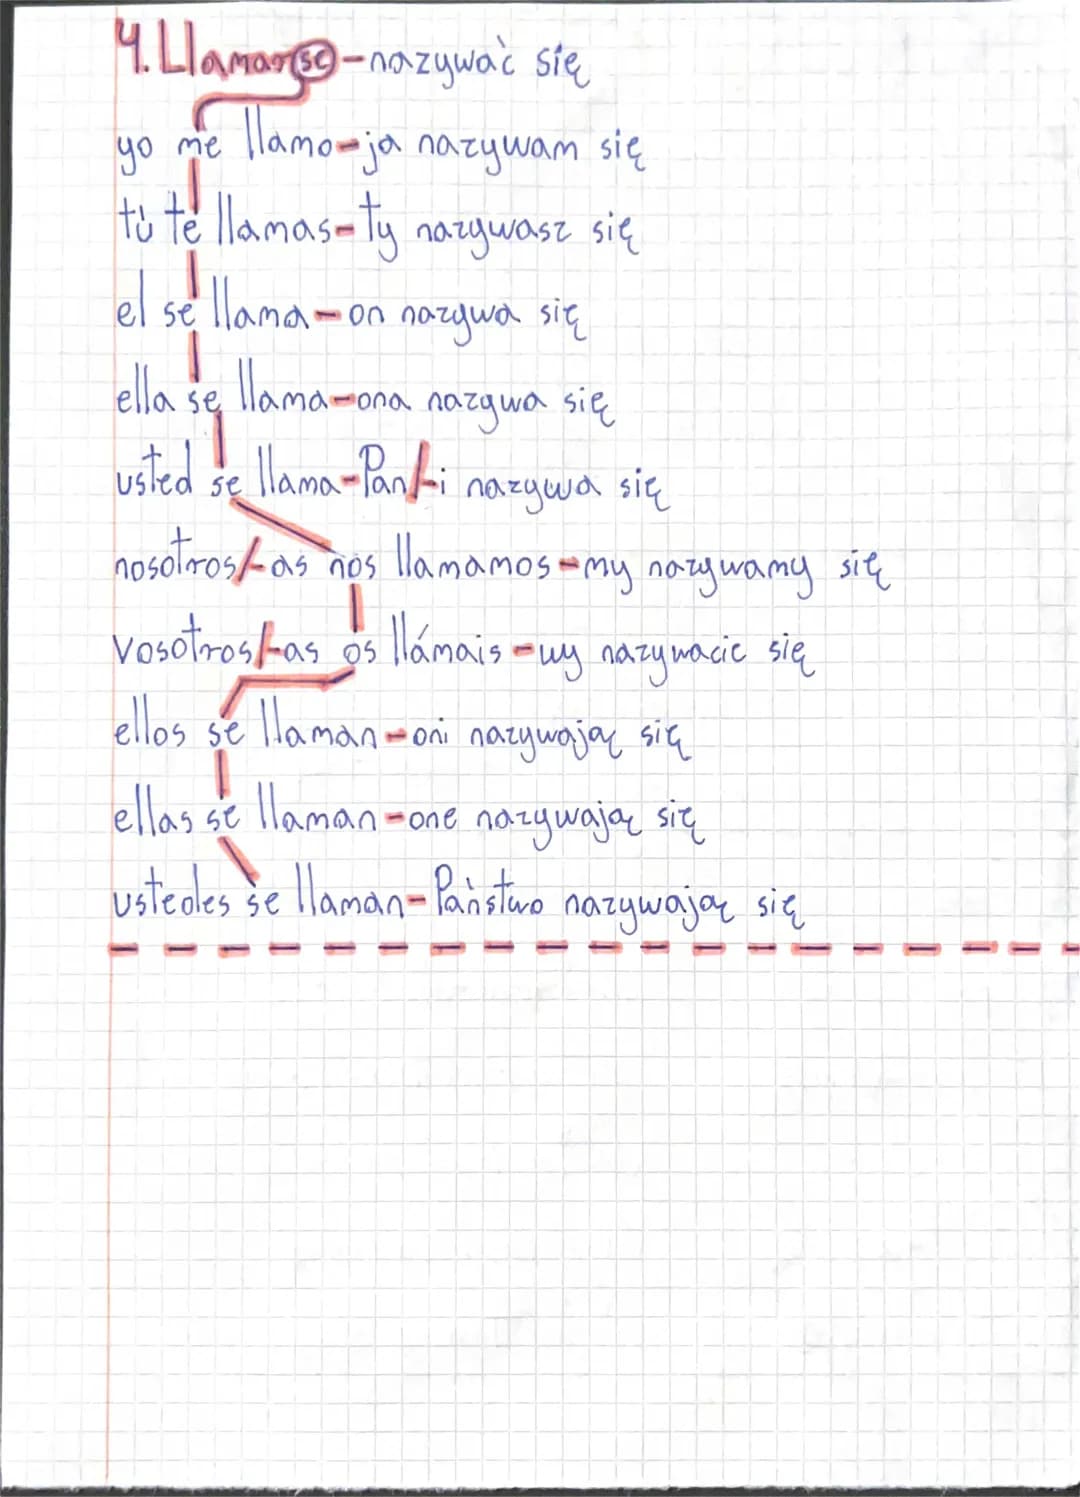 4. Llamarse - nazywać się
yo me llamo - ja nazywam się
tú te llamas - ty nazywasz się
el se llama - on nazywa się
ella se llama - ona nazywa się
usted se llama - Pan/-i nazywa się
nosotros/-as nos llamamos - my nazywamy się
vosotros/-as os llámais - wy nazywacie się
ellos se llaman - oni nazywają się
ellas se llaman - one nazywają się
ustedes se llaman - Państwo nazywają się